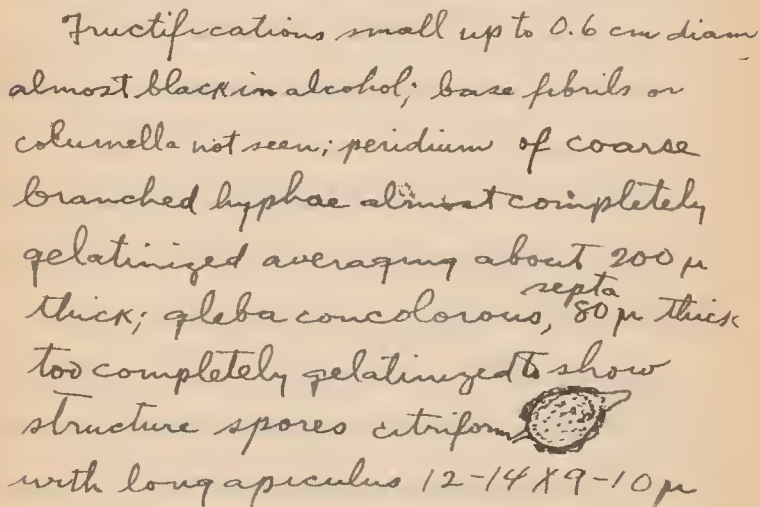 Fructifications small up to 0.6 cm diam
almost black in alcohol; base fibrils or
columella not seen; peridium of coarse
branched hyphae almost completely
gelatinized averaging about 200 µ
septa
thick; gleba concolorous, 80 µ thick
too completely gelatinized to show
structure spores citriform
with long apiculus 12-14 X 9-10 µ